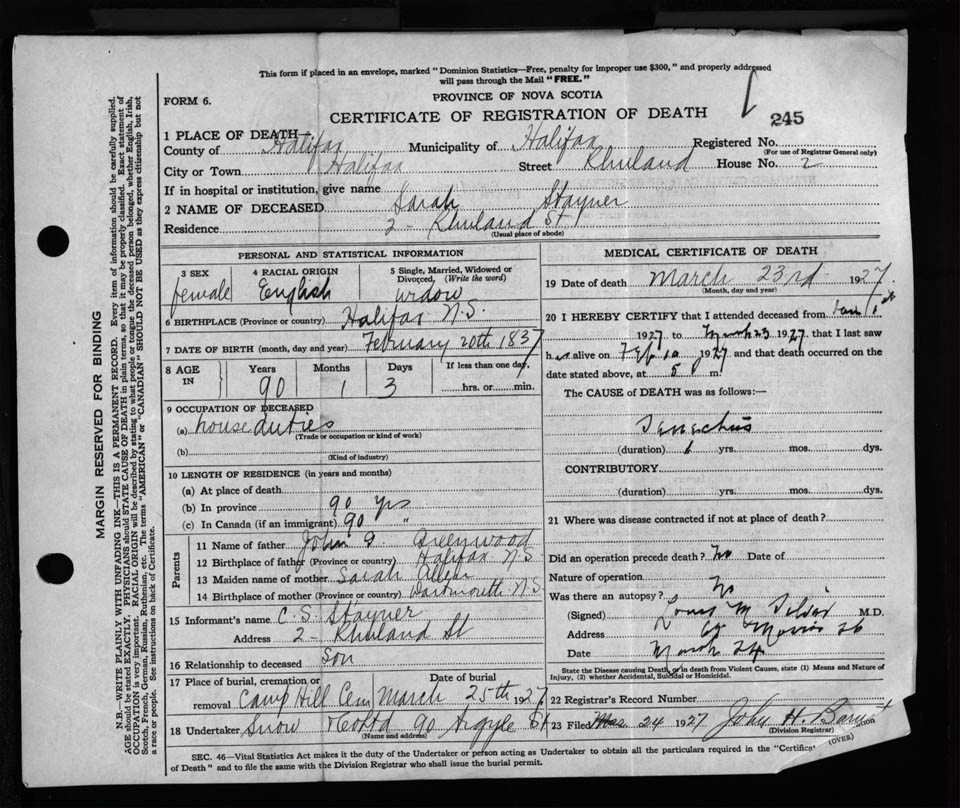 This form if placed in an envelope, marked "Dominion Statistics—Free, penalty for improper use $300," and properly addressed
will pass through the Mail "FREE."
FORM 6.
PROVINCE OF NOVA SCOTIA
CERTIFICATE OF REGISTRATION OF DEATH
245
1 PLACE OF DEATH—
County of Halifax Municipality of Halifax Registered No.
(For use of Registrar General only)
City or Town Halifax Street Rhuland House No. 2
If in hospital or institution, give name
2 NAME OF DECEASED Sarah Stayner
Residence 2 - Rhuland St
(Usual place of abode)
PERSONAL AND STATISTICAL INFORMATION
3 SEX 4 RACIAL ORIGIN 5 Single, Married, Widowed or Divorced, (Write the word)
female English widow
6 BIRTHPLACE (Province or country) Halifax N.S.
7 DATE OF BIRTH (month, day and year) February 20th 1837
8 AGE IN Years Months Days If less than one day,
90 1 3 hrs. or min.
9 OCCUPATION OF DECEASED
(a) house duties
(Trade or occupation or kind of work)
(b)
(Kind of industry)
10 LENGTH OF RESIDENCE (in years and months)
(a) At place of death
(b) In province 90 yrs
(c) In Canada (if an immigrant) 90 "
Parents
11 Name of father John Greenwood
12 Birthplace of father (Province or country) Halifax N.S.
13 Maiden name of mother Sarah Allen
14 Birthplace of mother (Province or country) Dartmouth N.S.
15 Informant's name C. S. Stayner
Address 2 - Rhuland St
16 Relationship to deceased son
17 Place of burial, cremation or removal Camp Hill Cem Date of burial March 25th 1927
18 Undertaker Snow & Co Ltd 90 Argyle St
(Name and address)
MEDICAL CERTIFICATE OF DEATH
19 Date of death March 23rd 1927
(Month, day and year)
20 I HEREBY CERTIFY that I attended deceased from Jan 1st
1927 to March 23 1927 that I last saw
her alive on Feb 10 1927 and that death occurred on the
date stated above, at 5 m
The CAUSE OF DEATH was as follows:—
(duration) yrs. mos. dys.
CONTRIBUTORY
(duration) yrs. mos. dys.
21 Where was disease contracted if not at place of death?
Did an operation precede death? No Date of
Nature of operation
Was there an autopsy? No
(Signed) Louis M Silver M.D.
Address Morris St
Date March 24
State the Disease causing Death, or in death from Violent Causes, state (1) Means and Nature of
Injury, (2) whether Accidental, Suicidal or Homicidal.
22 Registrar's Record Number
23 Filed Mar 24 1927 John H.
(Division Registrar)
(OVER)
SEC. 46—Vital Statistics Act makes it the duty of the Undertaker or person acting as Undertaker to obtain all the particulars required in the "Certificate
of Death" and to file the same with the Division Registrar who shall issue the burial permit.
MARGIN RESERVED FOR BINDING
N.B.—WRITE PLAINLY, WITH UNFADING INK—THIS IS A PERMANENT RECORD. Every item of information should be carefully supplied.
AGE should be stated EXACTLY. PHYSICIANS should STATE CAUSE OF DEATH in plain terms, so that it may be properly classified. Exact statement of
OCCUPATION is very important. RACIAL ORIGIN will be described by stating to what people or tongue the deceased person belonged, whether English, Irish,
Scotch, French, German, Russian, Ruthenian, etc. The terms "AMERICAN" or "CANADIAN" SHOULD NOT BE USED as they express citizenship but not
a race or people. See instructions on back of Certificate.